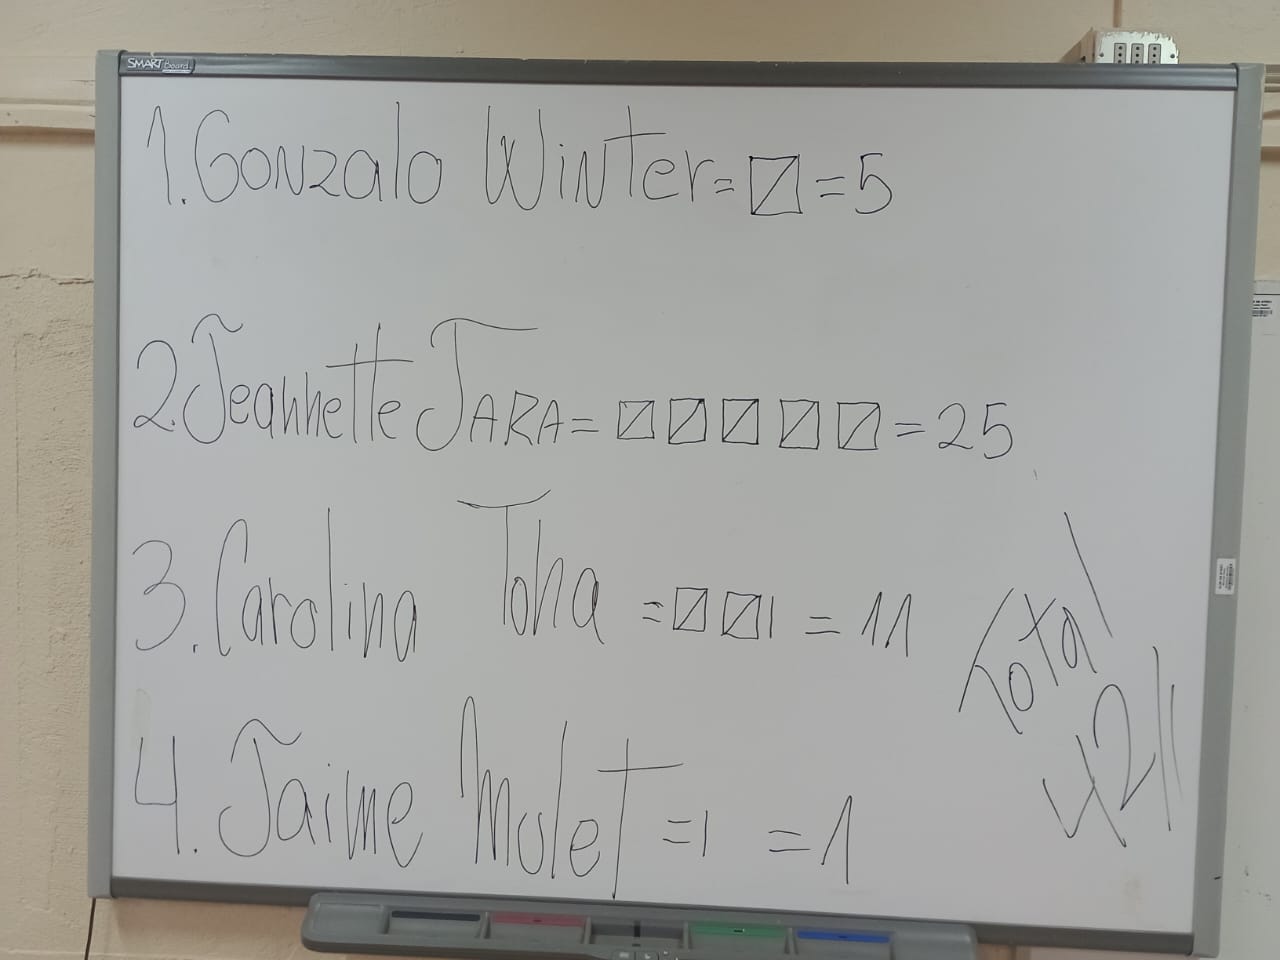 SMART Board
1. Gonzalo Winter = = 5
2. Jeannette JARA = = 25
3. Carolina Toha = 1 = 11
4. Jaime Mulet = 1 = 1
Total
42//